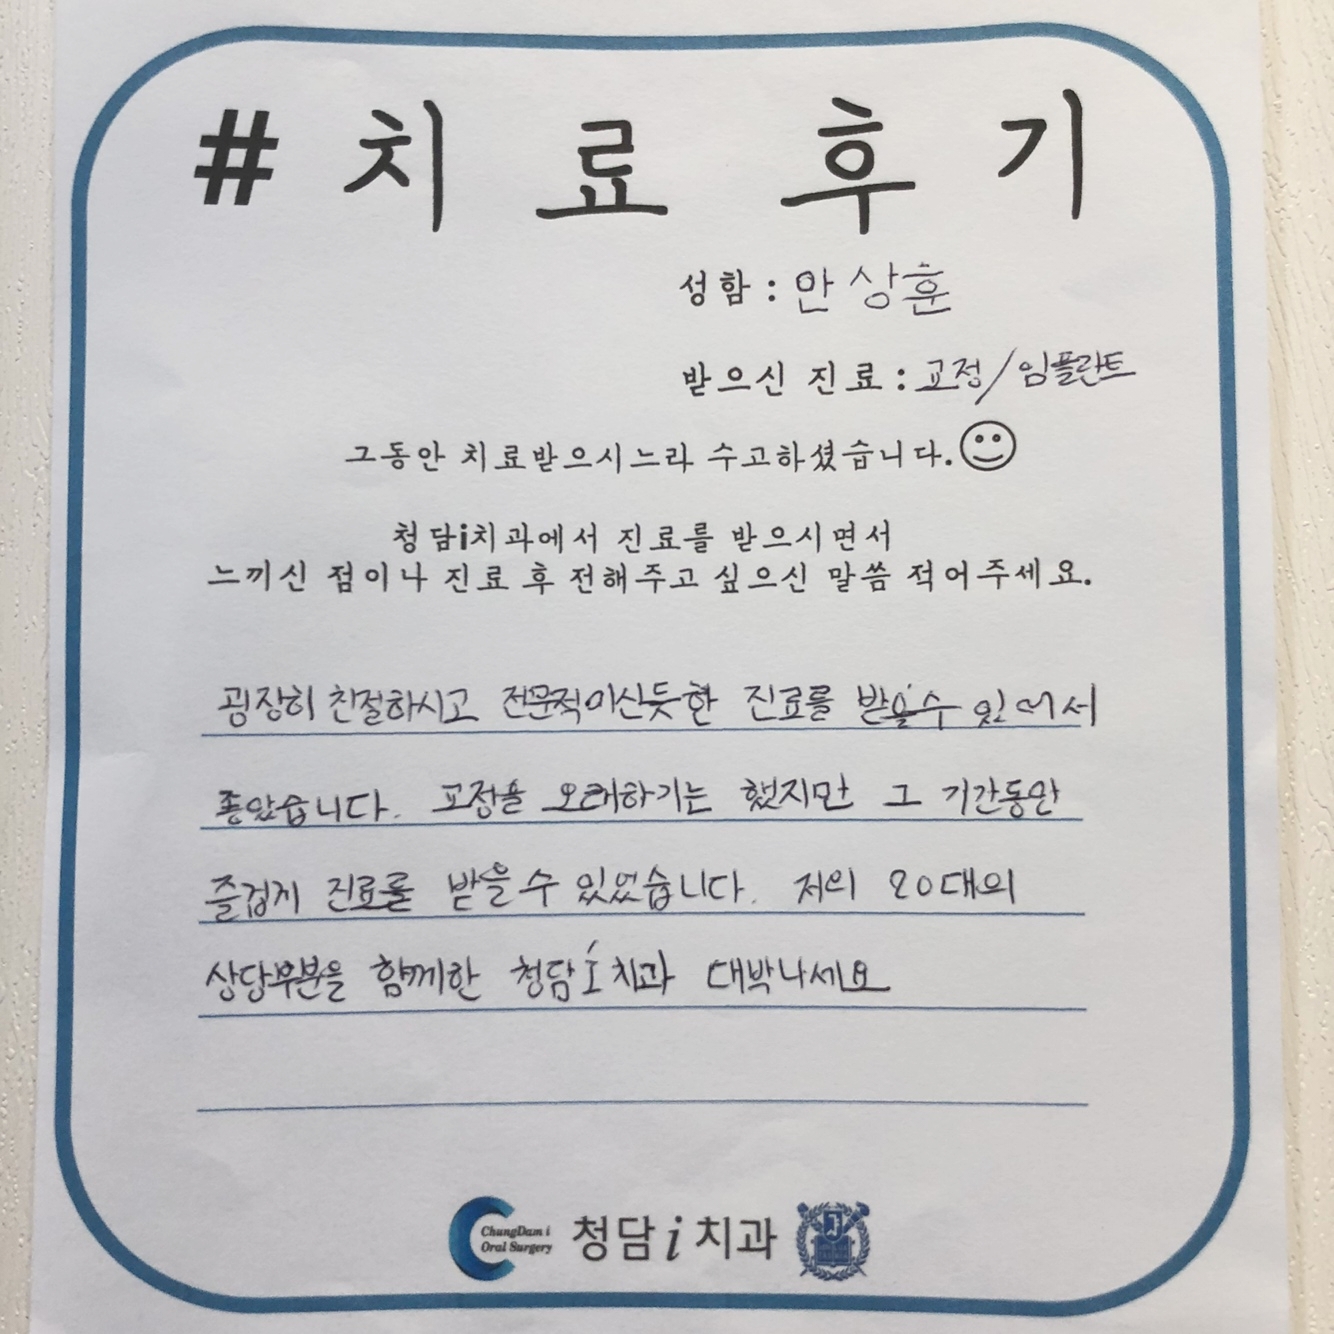 # 치 료 후 기
성함 : 안상훈
받으신 진료 : 교정/임플란트
그동안 치료받으시느라 수고하셨습니다.
청담i치과에서 진료를 받으시면서
느끼신 점이나 진료 후 전해주고 싶으신 말씀 적어주세요.
굉장히 친절하시고 전문적이신듯한 진료를 받을수 있어서
좋았습니다. 교정을 오래하기는 했지만 그 기간동안
즐겁게 진료를 받을수 있었습니다. 저의 20대의
상당부분을 함께한 청담i치과 대박나세요
ChungDam i
Oral Surgery
청담i치과